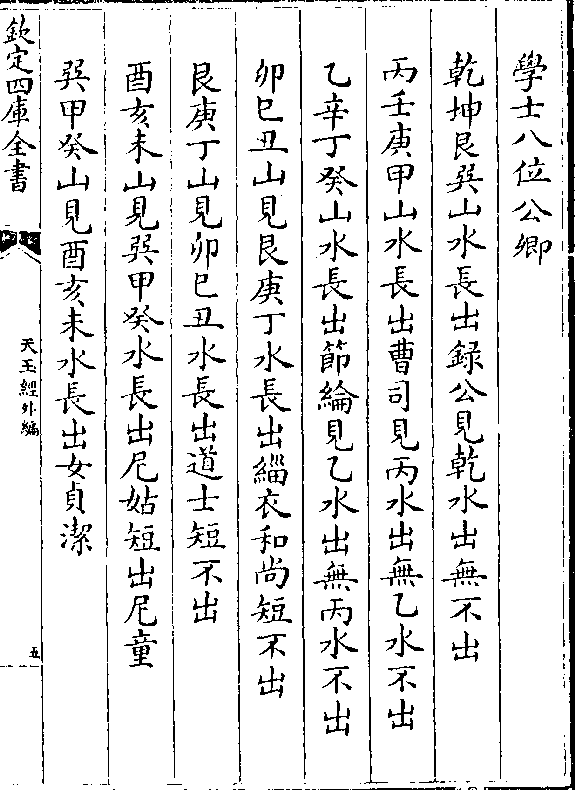 學士八位公卿
乾坤艮巽山水長出録公見乾水出無不出
丙壬庚甲山水長出曹司見丙水出無乙水不出
乙辛丁癸山水長出節綸見乙水出無丙水不出
卯巳丑山見艮庚丁水長出緇衣和尚短不出
艮庚丁山見卯巳丑水長出道士短不出
酉亥未山見巽甲癸水長出尼姑短出尼童
巽甲癸山見酉亥未水長出女貞潔
欽定四庫全書
天玉經外編
五